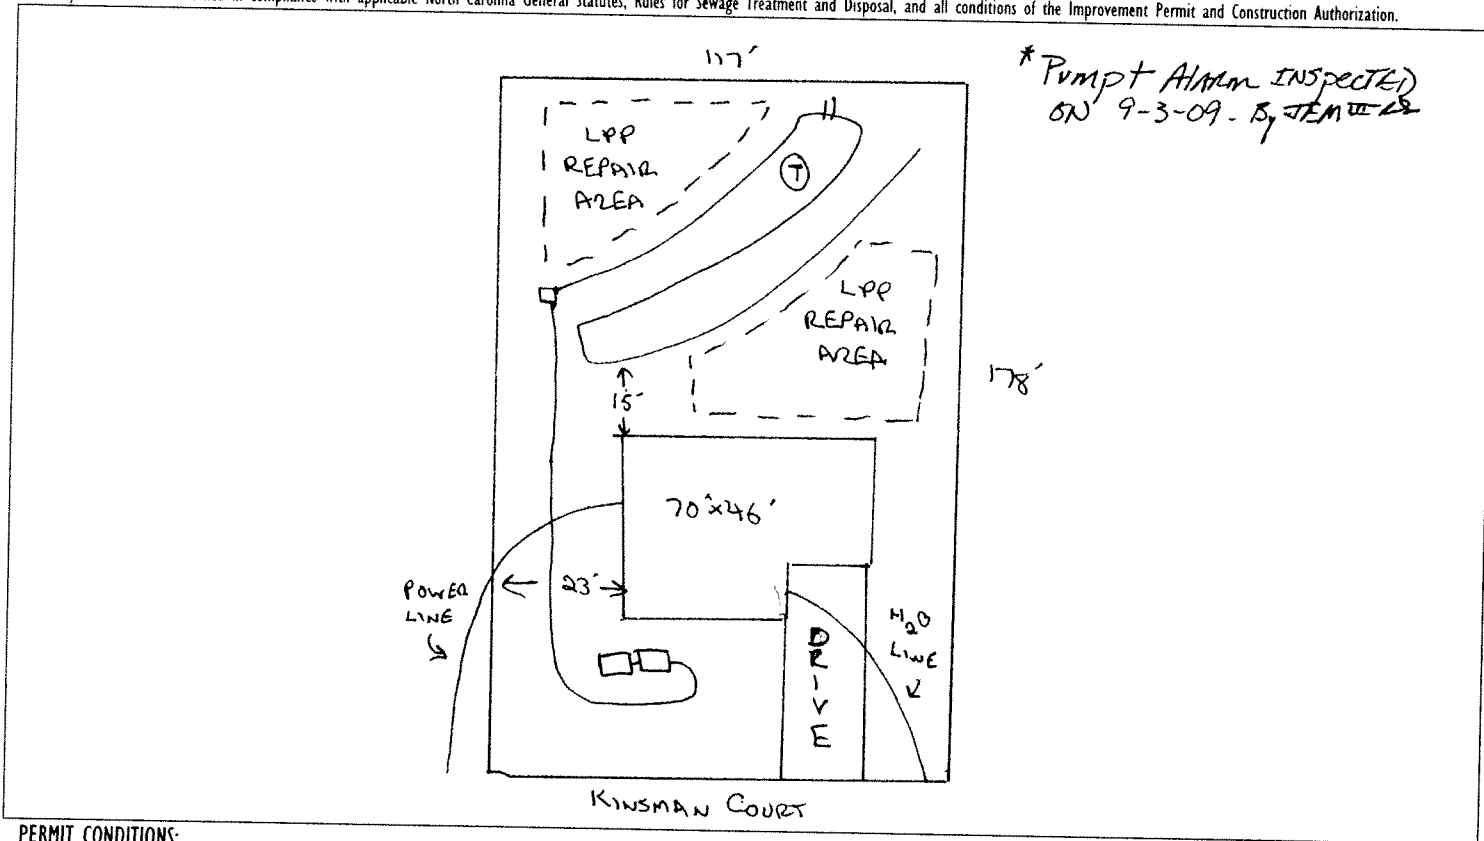 with applicable North Carolina General Statutes, Rules for Sewage Treatment and Disposal, and all conditions of the Improvement Permit and Construction Authorization.
117'
* Pump + Alarm INSpecTED
ON 9-3-09 - By JEM III
LPP
REPAIR
AREA
T
LPP
REPAIR
AREA
178'
15'
70'x46'
23'
POWER
LINE
H2O
LINE
DRIVE
KINSMAN COURT
PERMIT CONDITIONS: